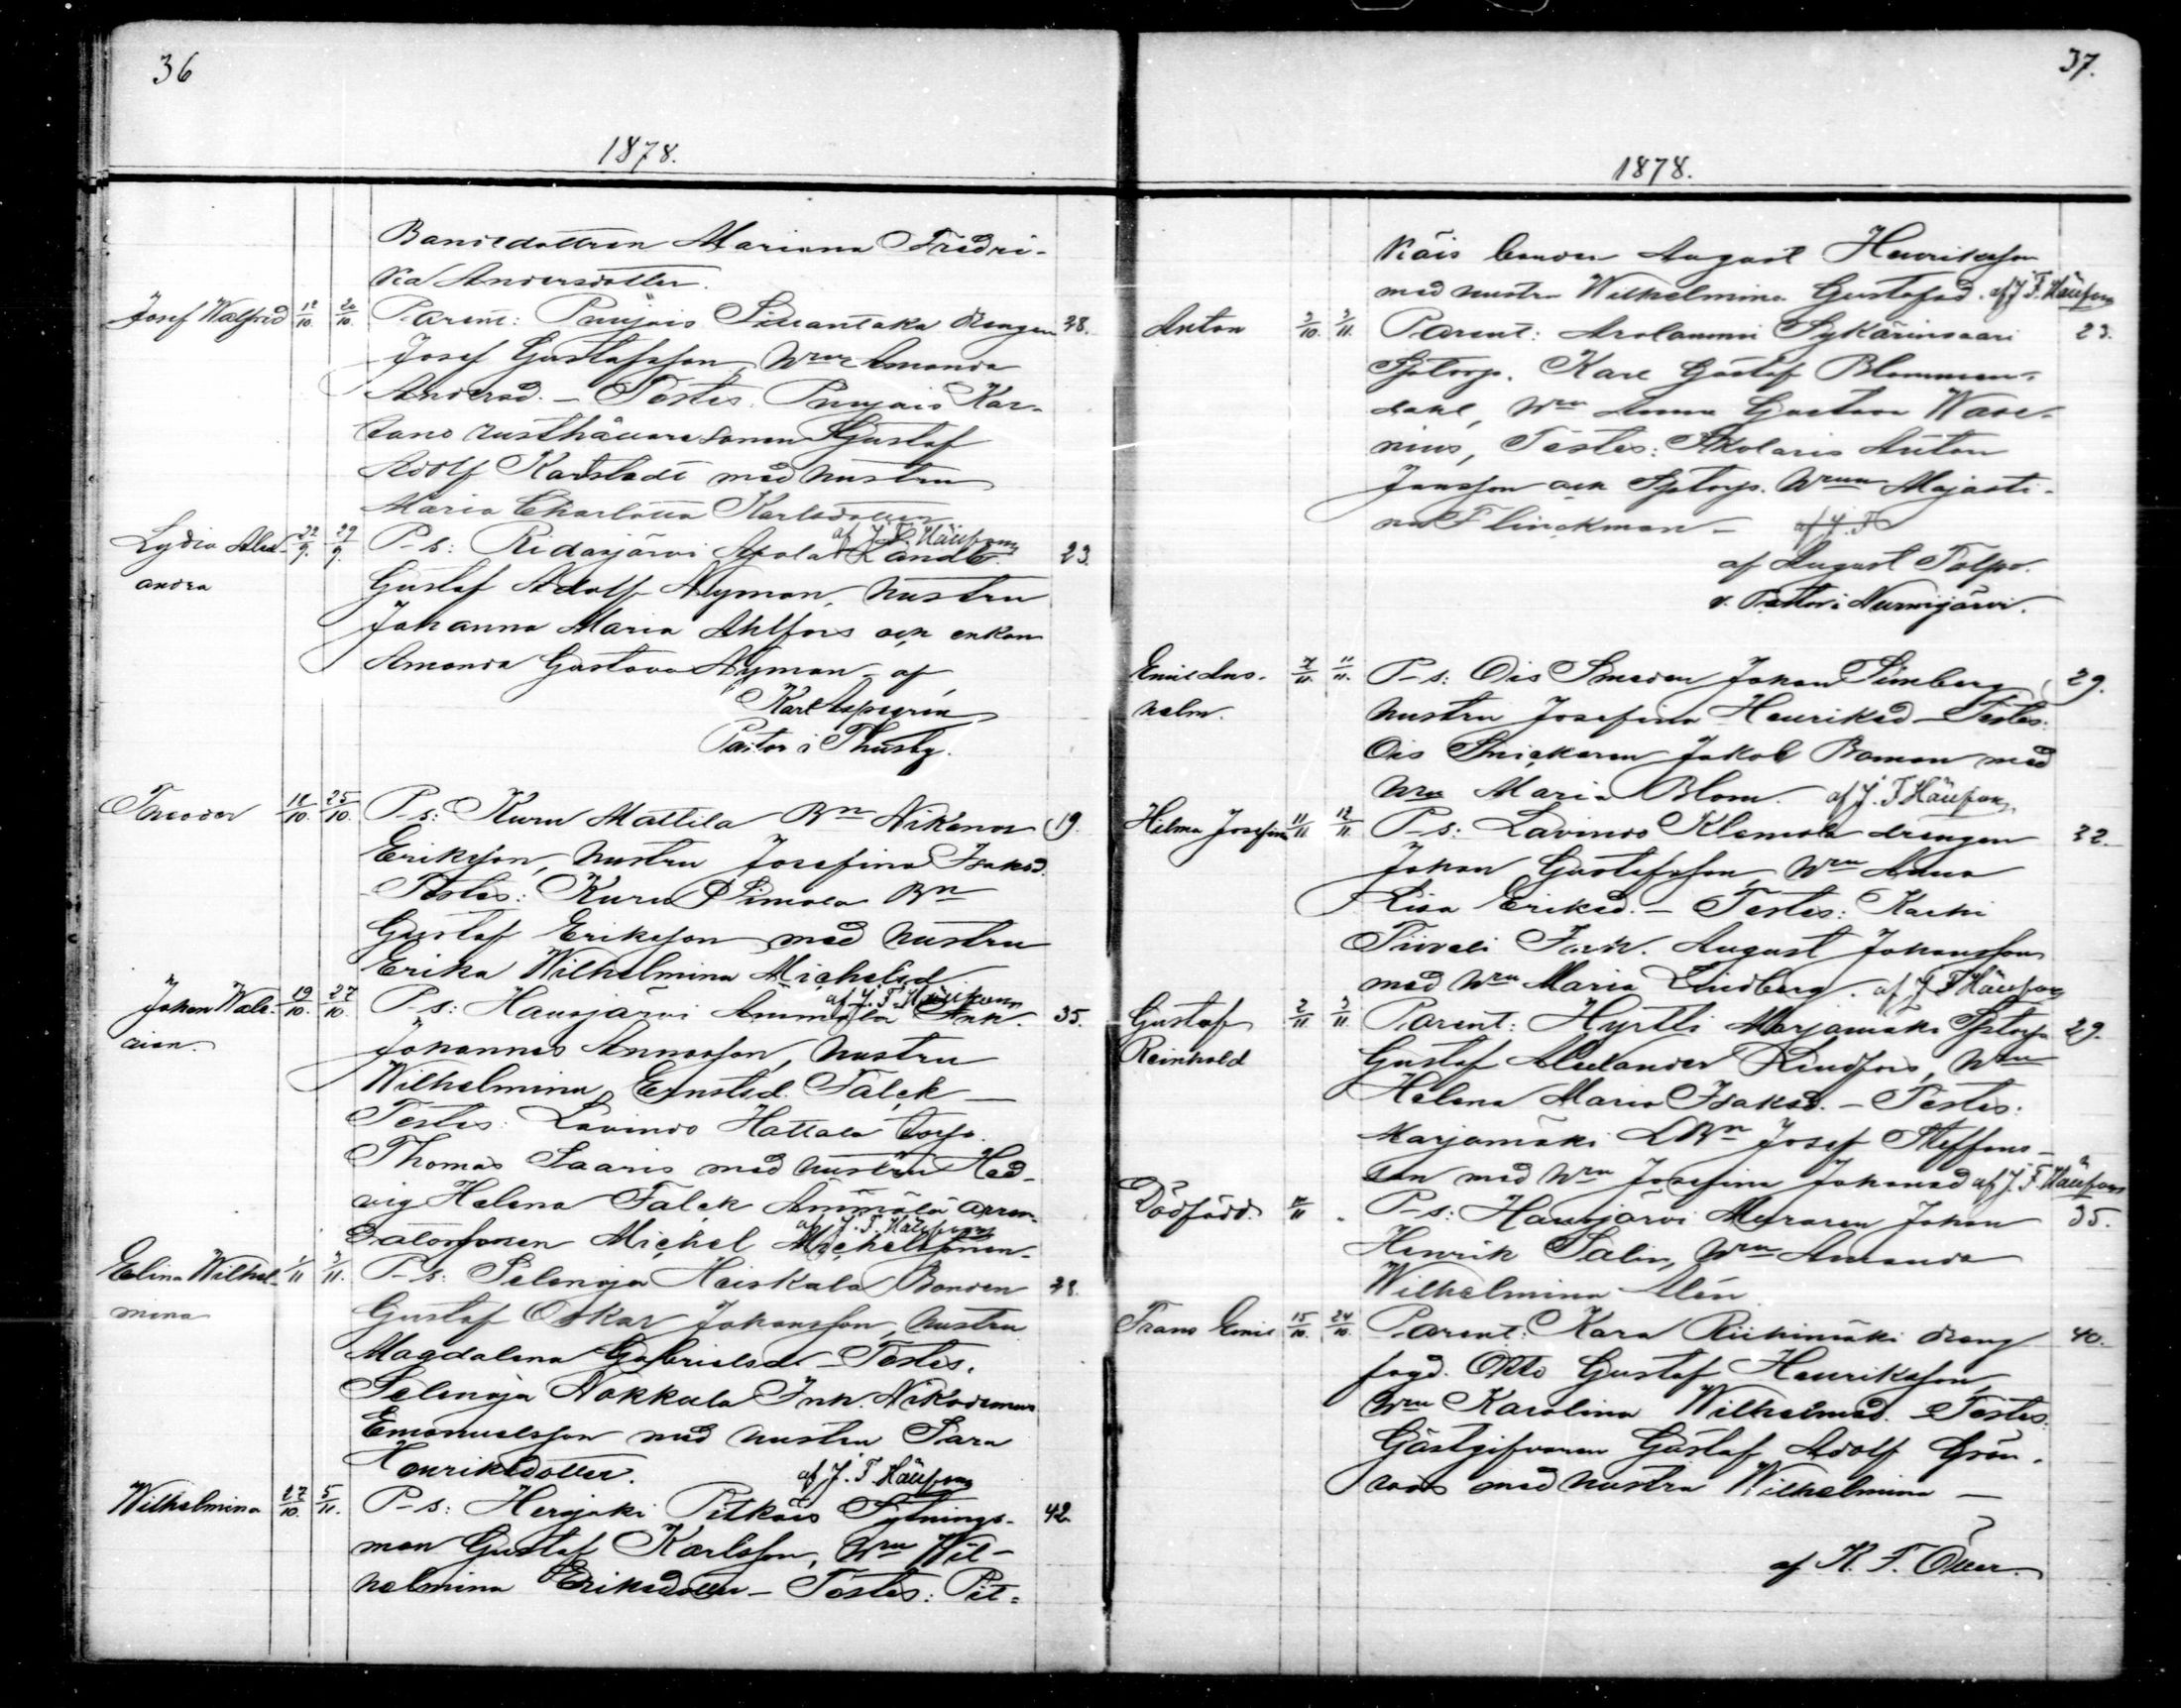 36
1878.
Bondedottren Mariana Fredri-
ka Andersdotter.
Josef Walfrid 12/10. 20/10. Parent: Puujais Siltantaka drengen 28.
Josef Gustafsson, Hru Amanda
Andersd. — Testes. Puujais Kar-
tano rusthållaresonen Gustaf
Adolf Karlstedt med hustru
Maria Charlotta Karlsdotter
af J. F. Häufong
Lydia Alex- 22/9. 29/9. P-s: Ridasjärvi Apola Landb. 23.
andra Gustaf Adolf Nyman, hustru
Johanna Maria Ahlfors och enkan
Amanda Gustava Nyman — af
Karl Aspegren
Pastor i Thusby.
Theodor 18/10. 25/10. P-s: Kuru Mattila Bn Nikanor 19.
Eriksson, hustru Josefina Isaksd.
— Testes: Kuru Simola Bn
Gustaf Eriksson med hustru
Erika Wilhelmina Michelsd
af J. F. Häufong
Johan Vale- 19/10. 27/10. P-s: Hausjärvi Ämmälä Ink. 35.
rian. Johannes Annasson, hustru
Wilhelmina Ernstsd. Falck —
Testes: Lavinto Hattala torp.
Thomas Saaris med hustru Hed-
vig Helena Falck Ämmälä arren-
datorsonen Michel Michelsson.
af J. F. Häufong
Elina Wilhel- 1/11 3/11. P-s: Selenoja Heiskala Bonden 28.
mina Gustaf Oskar Johansson, hustru
Magdalena Gabrielsd — Testes.
Selenoja Nokkala Ink. Nikodemus
Emanuelsson med hustru Sara
Henriksdotter. af J. F. Häufong
Wilhelmina 27/10. 5/11. P-s: Herajoki Pitkäis Sytnings-
42.
man Gustaf Karlsson, Hru Wil-
helmina Eriksdotter — Testes: Pit=
37.
1878.
käis bonden August Henriksson
med hustru Wilhelmina Gustafsd. af J. F. Häufong
Anton 3/10. 3/11. Parent: Arolammi Sykärinsaari 23.
Sptorp. Karl Gustaf Blommen-
dahl, Hru Anna Gustava Wase-
nius, Testes: Skolaris Anton
Jansson och Sptorp. Hrun Majasti-
na Flinckman — af J. F.
af August Tolpo.
v. Pastor i Nurmijärvi.
Emil Ans- 7/11. 11/11. P-s: Ois Smeden Johan Simberg, 29.
helm. hustru Josefina Henriksd — Testes:
Ois Snickaren Jakob Boman med
Hru Maria Blom. af J. F. Häufong.
Helma Josefina 11/11. 12/11. P-s: Lavinto Klemola drengen 32.
Johan Gustafsson, Hru Anna
Lisa Eriksd. — Testes: Karhi
Inh. August Johansson
med Hru Maria Lindberg. af J. F. Häufong
Gustaf 2/11. 3/11. Parent: Hyrtti Marjamäki Sptorp 29.
Reinhold Gustaf Alexander Lindfors, Hru
Helena Maria Isaksd. — Testes:
Marjamäki LBn Josef Steffens-
son med Hru Josefina Johansd af J. F. Häufong
Dödfödd. P-s: Hausjärvi Muraren Johan 35.
Henrik Salin, Hru Amanda
Wilhelmina Alén
Frans Emil 15/10. 24/10. Parent: Kara Riihimäki dreng 40.
fogd. Otto Gustaf Henriksson,
Hru Karolina Wilhelmsd. — Testes:
Gästgifvaren Gustaf Adolf Grön-
roos med hustru Wilhelmina —
af K. F. Öller.